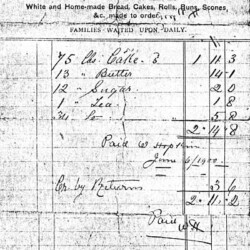 White and Home-made Bread, Cakes, Rolls, Buns, Scones,
&c., made to order.
FAMILIES WAITED UPON DAILY.
75 lbs. Cake 3 1 11 3
13 " Butter 14 1
12 " Sugar 2 0
1 " Tea 1 8
5 8
2 14 8
Paid W Hopkin
June 6/1900
Cr. by Returns 3 6
2 11 2
Paid WH